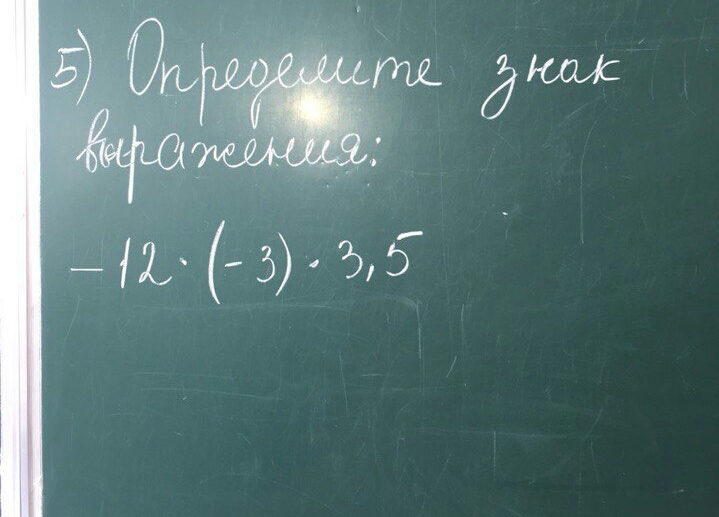 5) Определите знак
выражения:
-12·(-3)·3,5